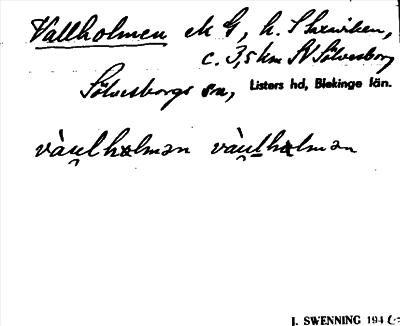 Vallholmen ek G, h. Skriviken,
c. 3,5 km SV Sölvesborg
Sölvesborgs sn, Listers hd, Blekinge län.
vàu̯lhɷlmən vàu̯lhɷlmən
J. SWENNING 194